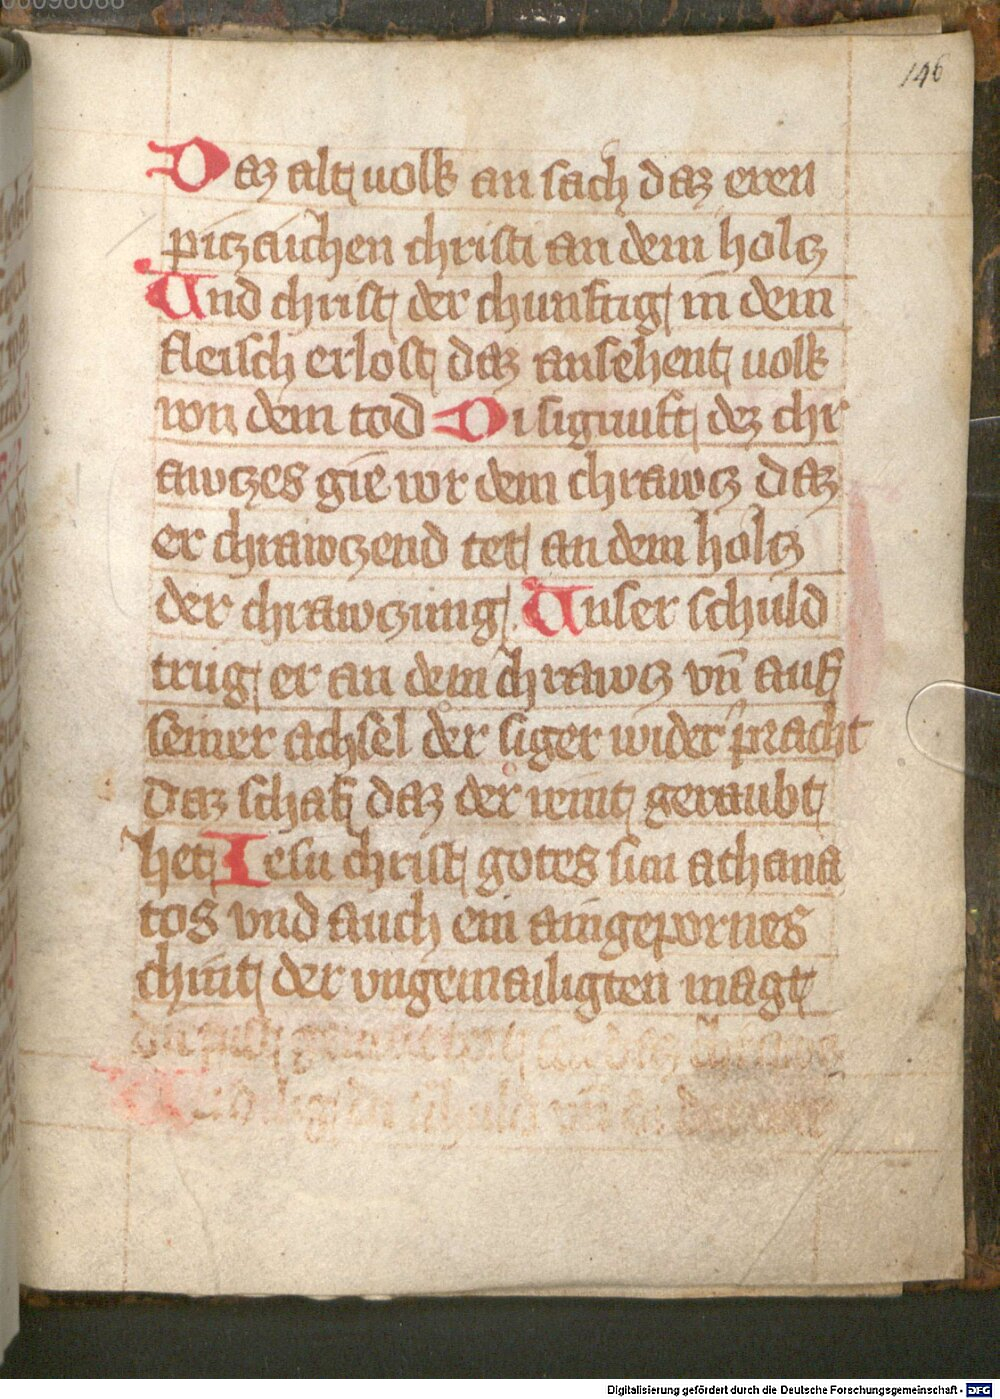 146
Daz alt uolk an sach daz eren
piczaichen christi an dem holcz
Und christ der chunftig in dem
fleisch erlost daz ansehent uolk
von dem tod Di signuft dez chr
awczes gie wr dem chrawcz daz
er chrawczend tet an dem holcz
der chrawczung Unser schuld
trug er an dem chrawcz vn̄ auf
seiner achsel der siger wider pracht
daz schaf daz der veint geraubt
het Iesu christ gotes sun athana
tos vnd auch ein aingepornes
chint der vngemailigten magt
Digitalisierung gefördert durch die Deutsche Forschungsgemeinschaft - DFG